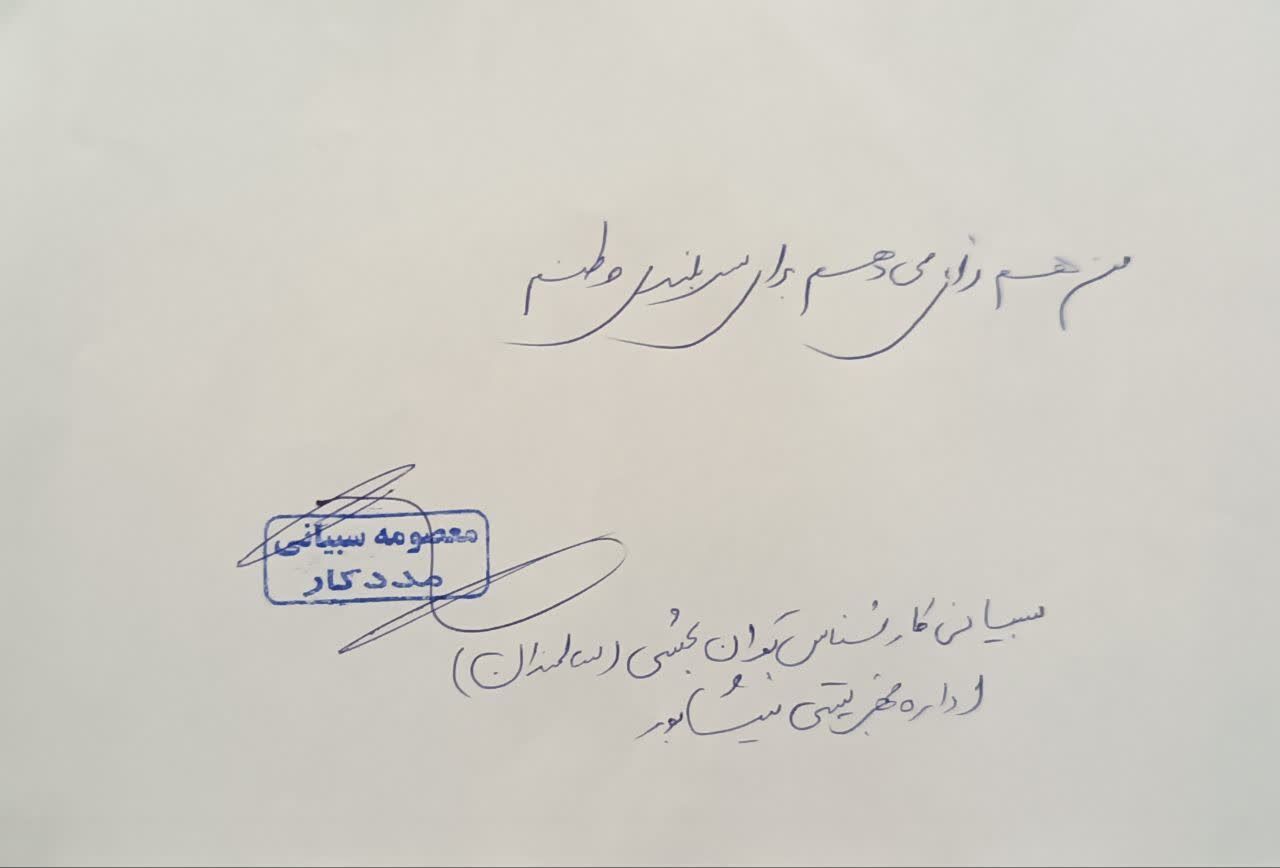 من هم رای می دهم برای سربلندی وطنم
معصومه سبیانی
مددکار
سبیانی کارشناس توان بخشی (سالمندان)
اداره بهزیستی نیشابور